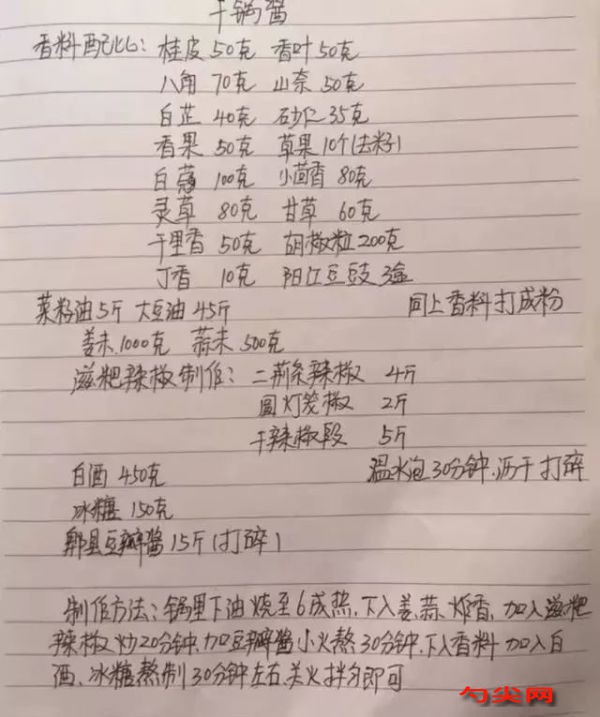 干锅酱
香料配比: 桂皮 50克 香叶 50克
八角 70克 山奈 50克
白芷 40克 砂仁 35克
香果 50克 草果 10个(去籽)
白蔻 100克 小茴香 80克
灵草 80克 甘草 60克
千里香 50克 胡椒粒 200克
丁香 10克 阳江豆豉 3盒
菜籽油 5斤 大豆油 45斤 同上香料打成粉
姜末.1000克 蒜末.500克
滋粑辣椒制作: 二荆条辣椒 4斤
圆灯笼椒 2斤
干辣椒段 5斤
白酒 450克 温水泡30分钟.沥干打碎
冰糖 150克
郫县豆瓣酱 15斤(打碎)
制作方法: 锅里下油烧至6成热.下入姜.蒜.炸香.加入滋粑
辣椒炒20分钟.加豆瓣酱小火熬30分钟.下入香料加入白
酒.冰糖熬制30分钟左右.关火拌匀即可
勺尖网